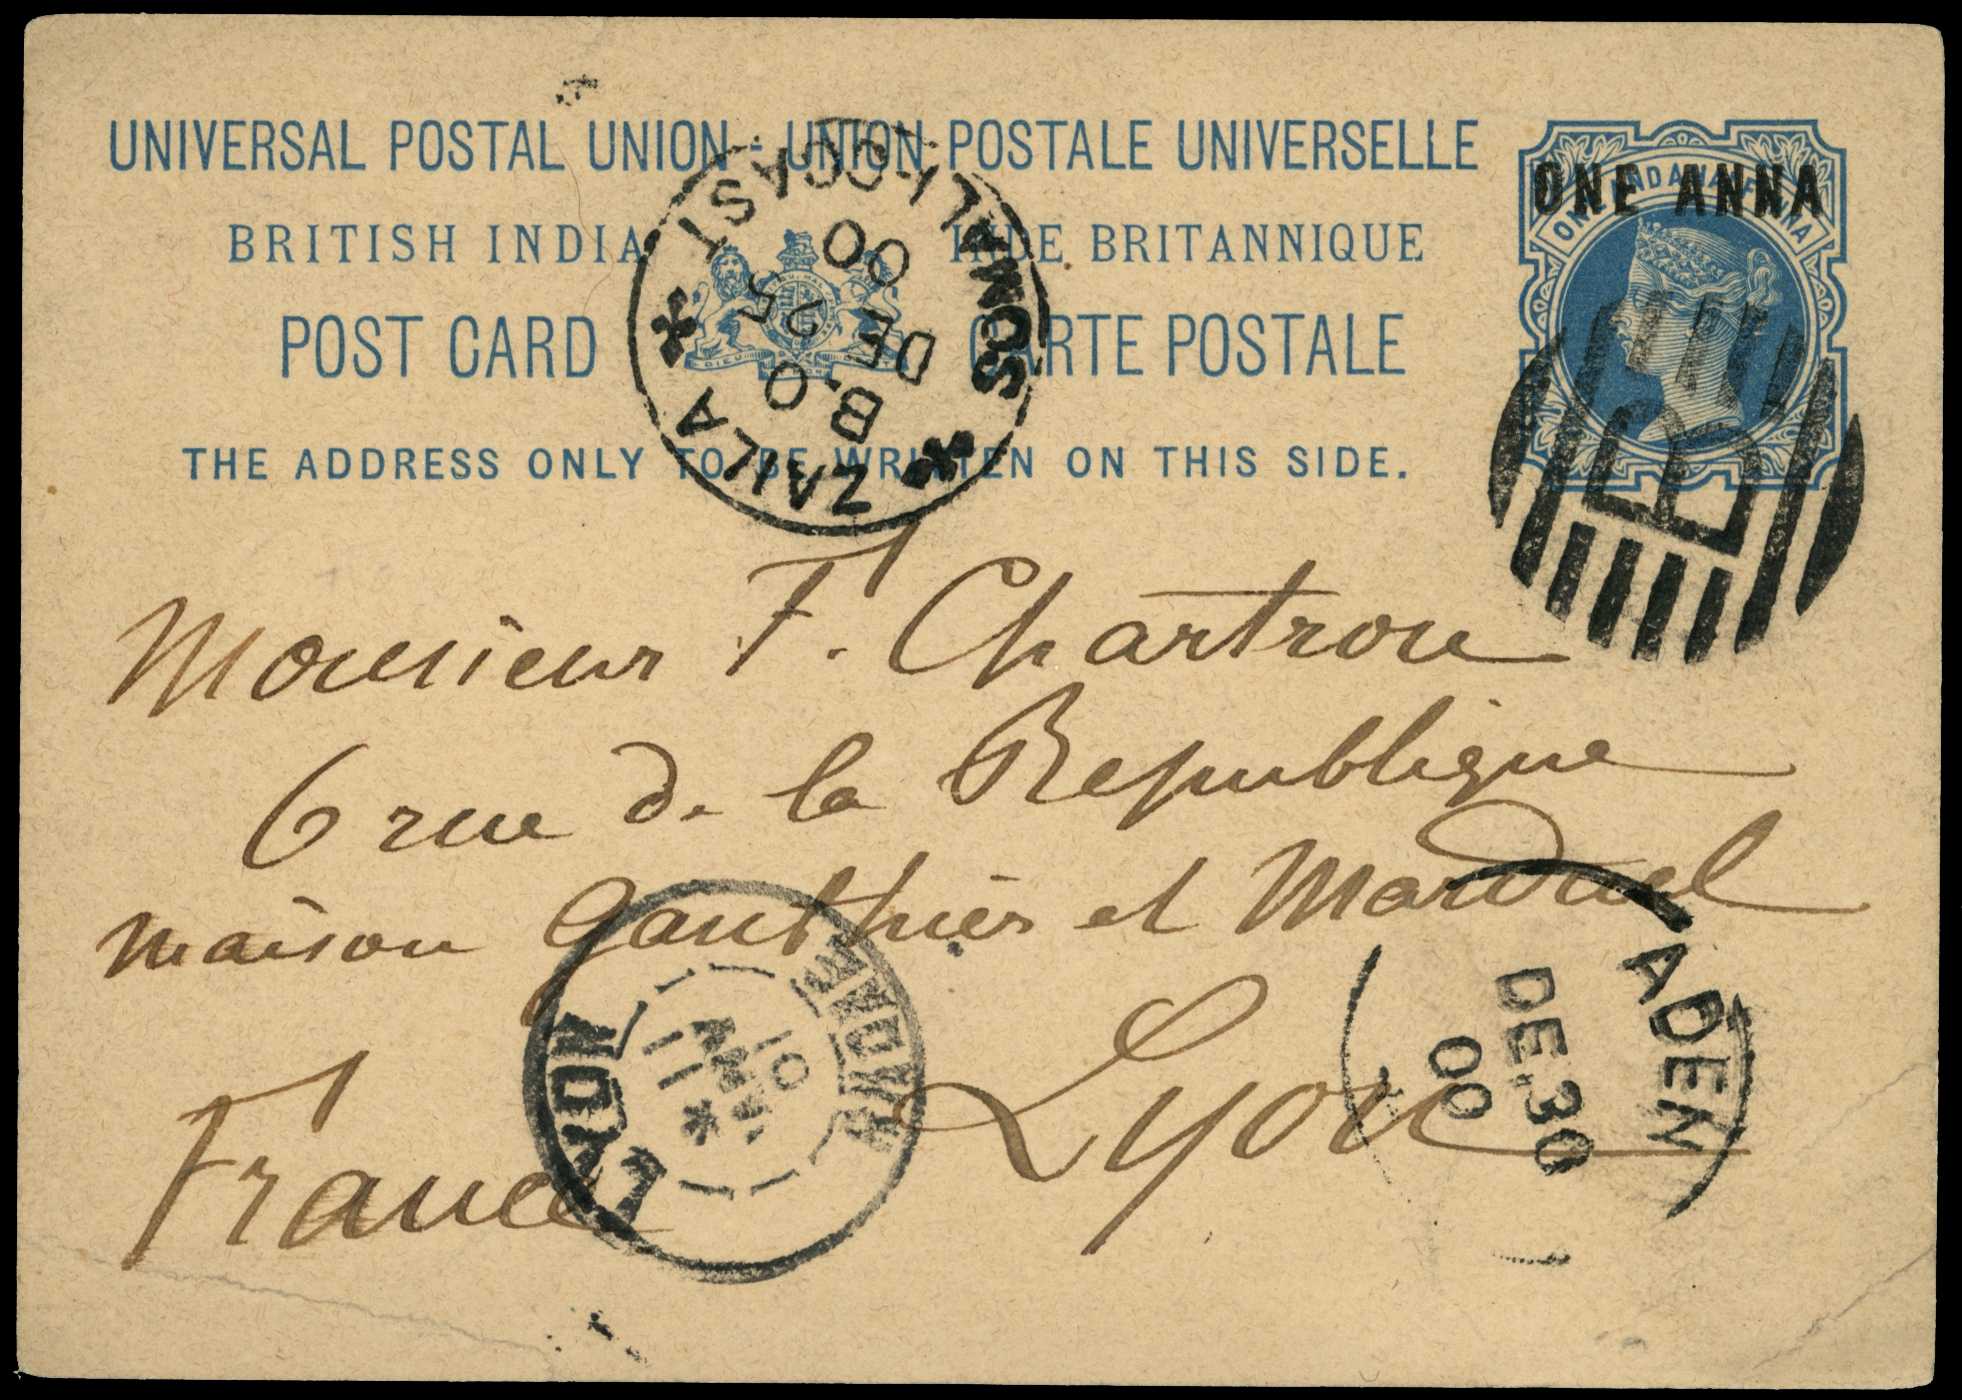 UNIVERSAL POSTAL UNION - UNION POSTALE UNIVERSELLE
BRITISH INDIA INDE BRITANNIQUE
POST CARD CARTE POSTALE
THE ADDRESS ONLY TO BE WRITTEN ON THIS SIDE.
ONE ANNA
ZAILA
SOMALI COAST
B.O.
DE 25
00
B
Monsieur F. Chartron
6 rue de la Republique
maison Gauthier et Marduel
Lyon
France
LYON
RHONE
11
JANV
01
ADEN
DE.30
00